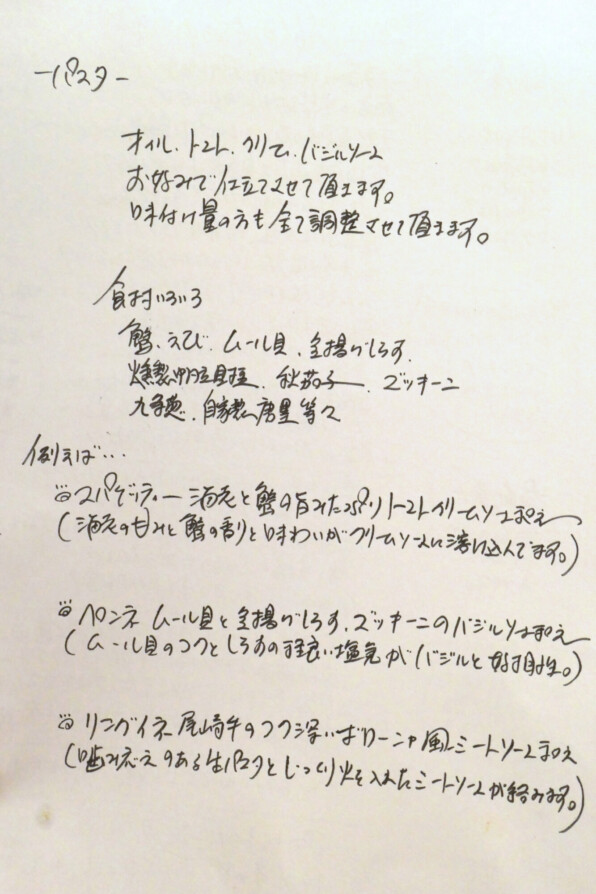 ーパスター
オイル、トマト、クリーム、バジルソース
お好みで仕立てさせて頂きます。
味付け量の方も全て調整させて頂きます。
食材いろいろ
蟹、えび、ムール貝、釜揚げしらす、
燻製帆立貝柱、秋茄子、ズッキーニ
九条葱、自家製唐墨等々
例えば…
スパゲッティー 海老と蟹の旨みたっぷりトマトクリームソース和え
(海老の甘みと蟹の香りと味わいがクリームソースに溶け込んでます。)
ペンネ ムール貝と釜揚げしらす、ズッキーニのバジルソース和え
(ムール貝のコクとしらすの程良い塩気がバジルと好相性。)
リングイネ 尾崎牛のコク深いボローニャ風ミートソース和え
(噛み応えのある生パスタとじっくり火を入れたミートソースが絡みます。)